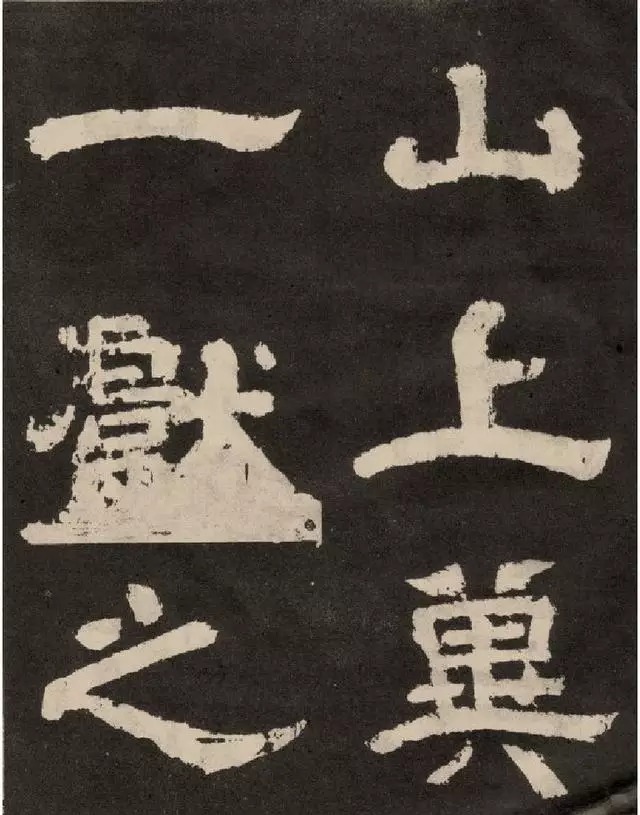 山上冀
一獻之